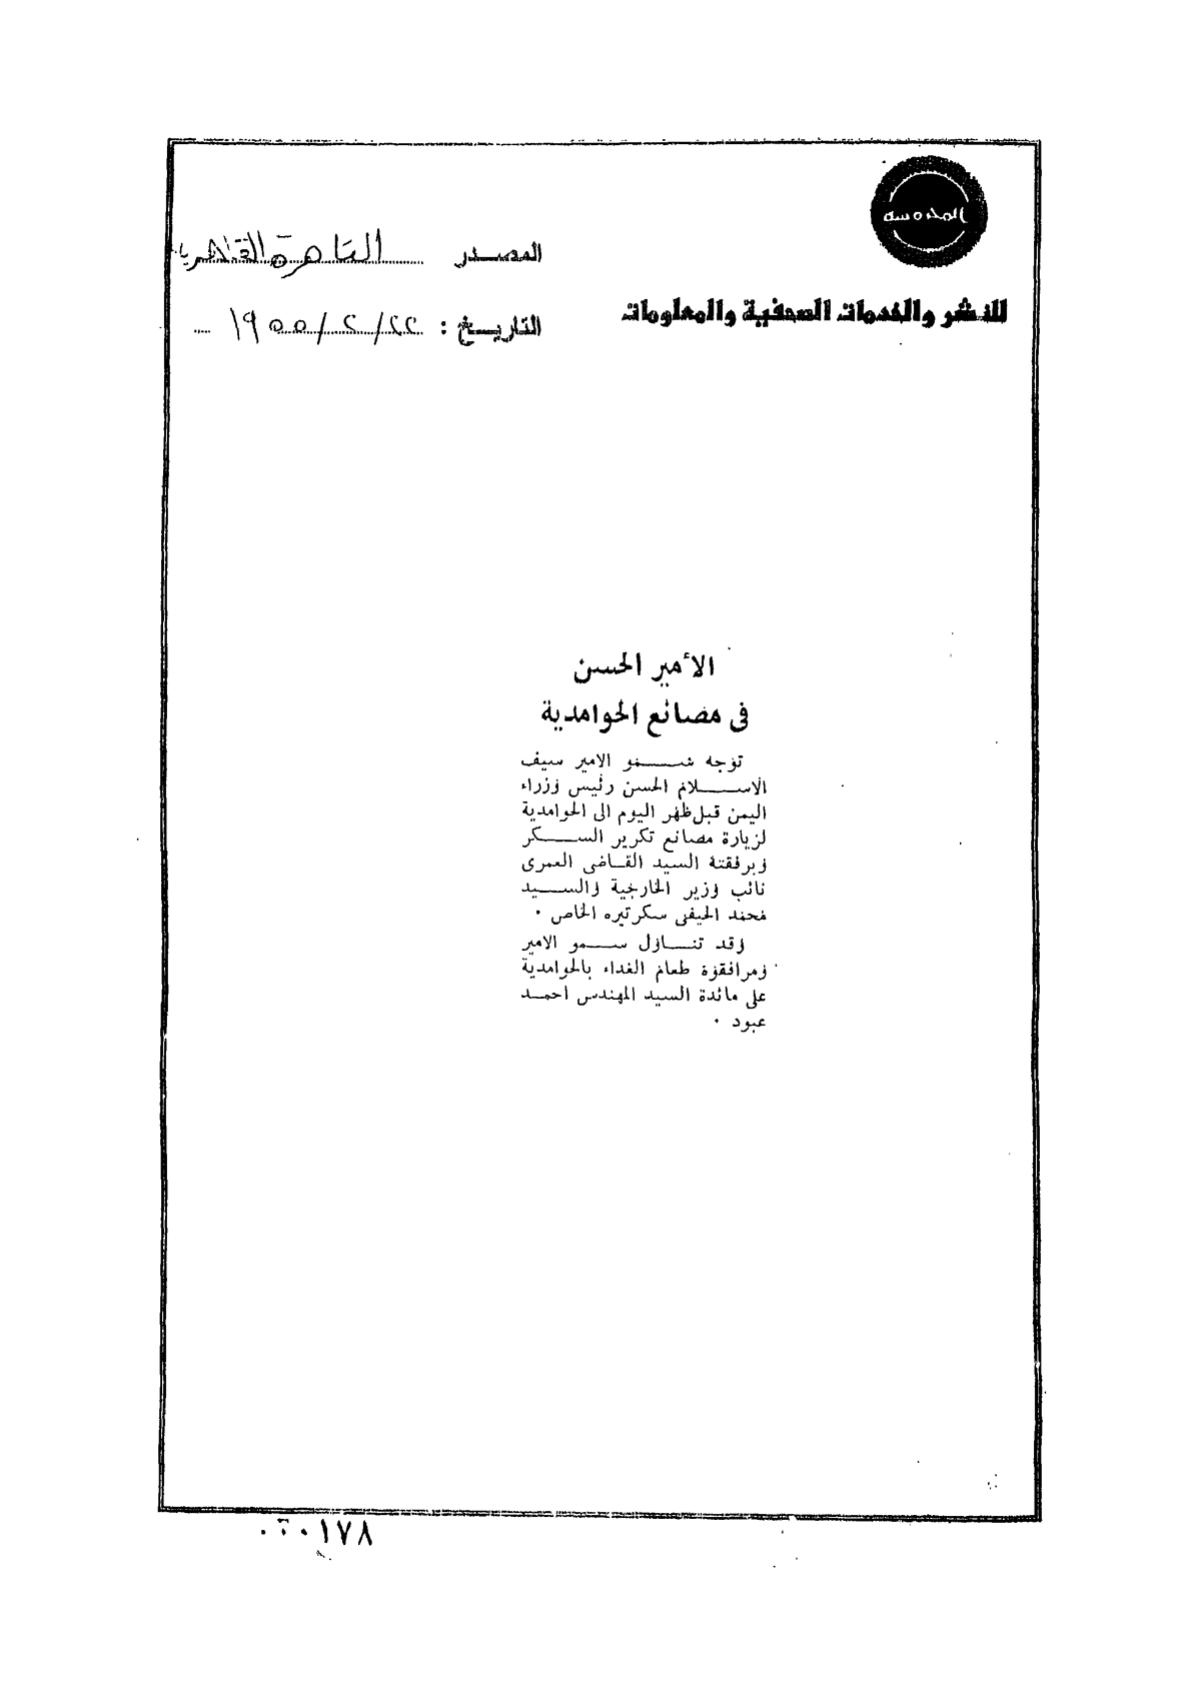 المحروسة
المصدر القاهرة القاهرية
للنشر والخدمات الصحفية والمعلومات
التاريخ : ٢٢/٢/١٩٥٥
الأمير الحسن
فى مصانع الحوامدية
توجه سمو الامير سيف
الاسلام الحسن رئيس وزراء
اليمن قبل ظهر اليوم الى الحوامدية
لزيارة مصانع تكرير السكر
وبرفقته السيد القاضى العمرى
نائب وزير الخارجية والسيد
محمد الحيفى سكرتيره الخاص .
وقد تناول سمو الامير
ومرافقوه طعام الغداء بالحوامدية
على مائدة السيد المهندس احمد
عبود .
١٧٨